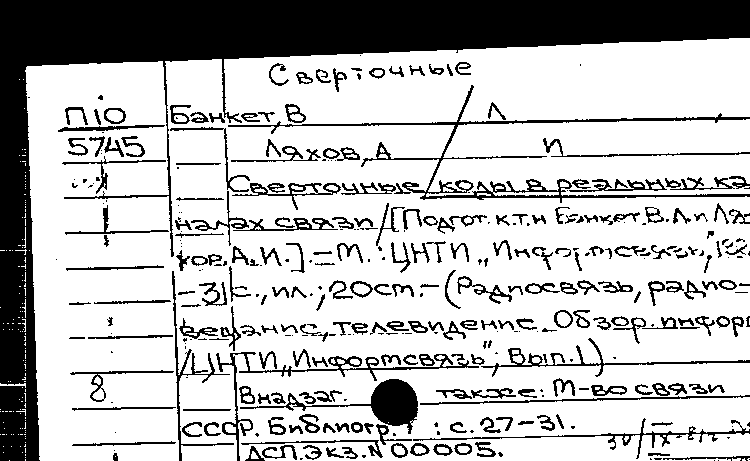 Сверточные
П10 Банкет, В Л
5745 Ляхов, А И
Сверточные коды в реальных ка
налах связи / [Подгот. к.т.н Банкет.В.Л. и Лях
ков. А.И.]. – М. : ЦНТИ „Информсвязь",
– 31 с., ил.; 20 см. – (Радиосвязь, радио-
вещание, телевидение. Обзор. информ
/ЦНТИ „Информсвязь"; Вып. 1).
8 В надзаг. также: М-во связи
СССР. Библиогр. : с. 27-31.
ДСП. Экз. N 00005.